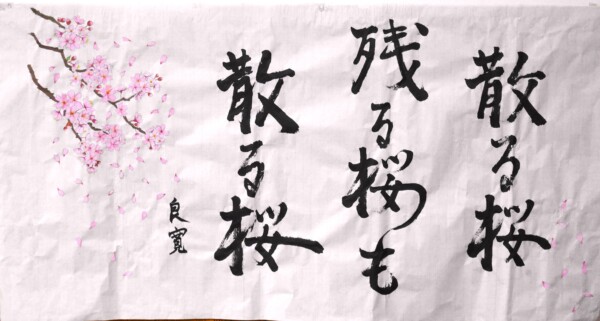 散る桜
残る桜も
散る桜
良寛